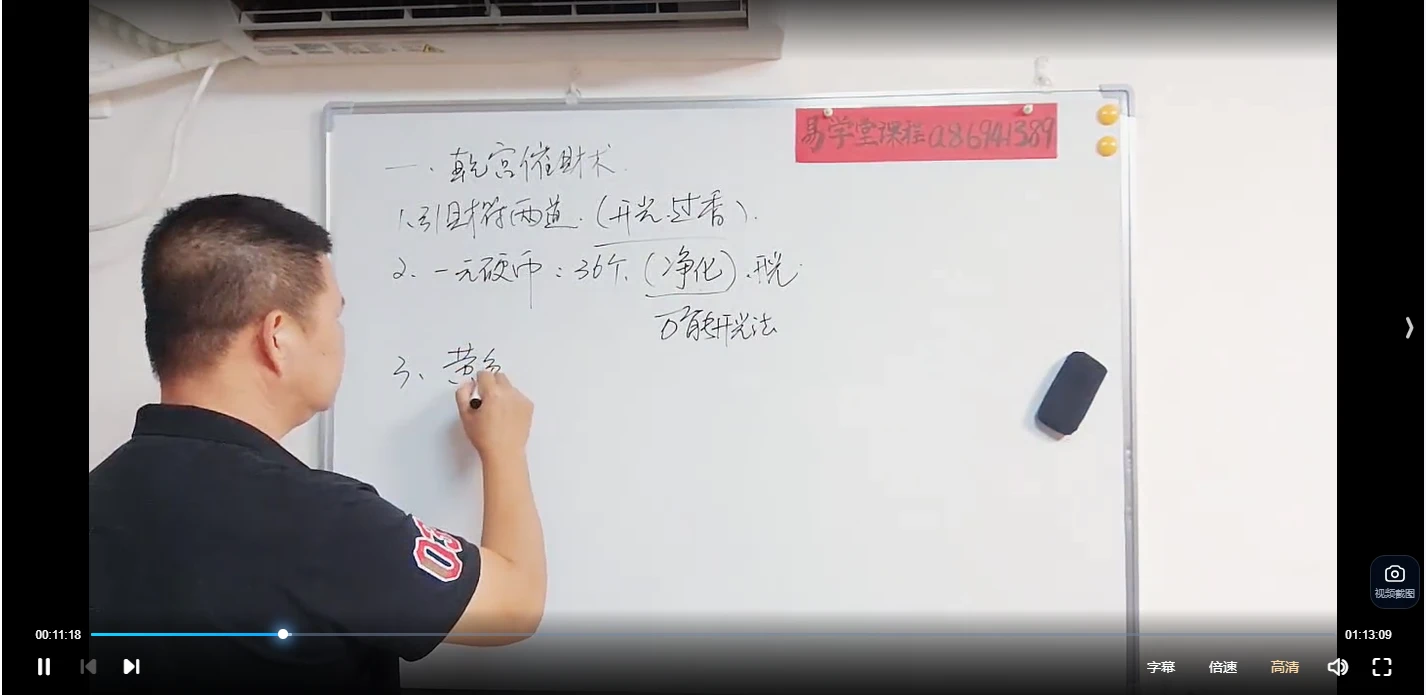 易学堂课程QQ86941389
一、乾宫催财术.
1、引财符两道.(开光.过香).
2、一元硬币:36个.(净化).开光.
万能开光法
3、黄色
03
视频截图
00:11:18
01:13:09
字幕
倍速
高清